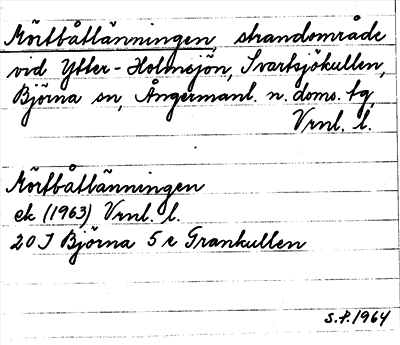 Mörtbåtlänningen, strandområde
vid Ytter-Holmsjön, Svartsjökullen,
Björna sn, Ångermanl. n. doms. tg,
Vrnl. l.
Mörtbåtlänningen
ek (1963) Vrnl. l.
20 J Björna 5 e Grankullen
S.P. 1964